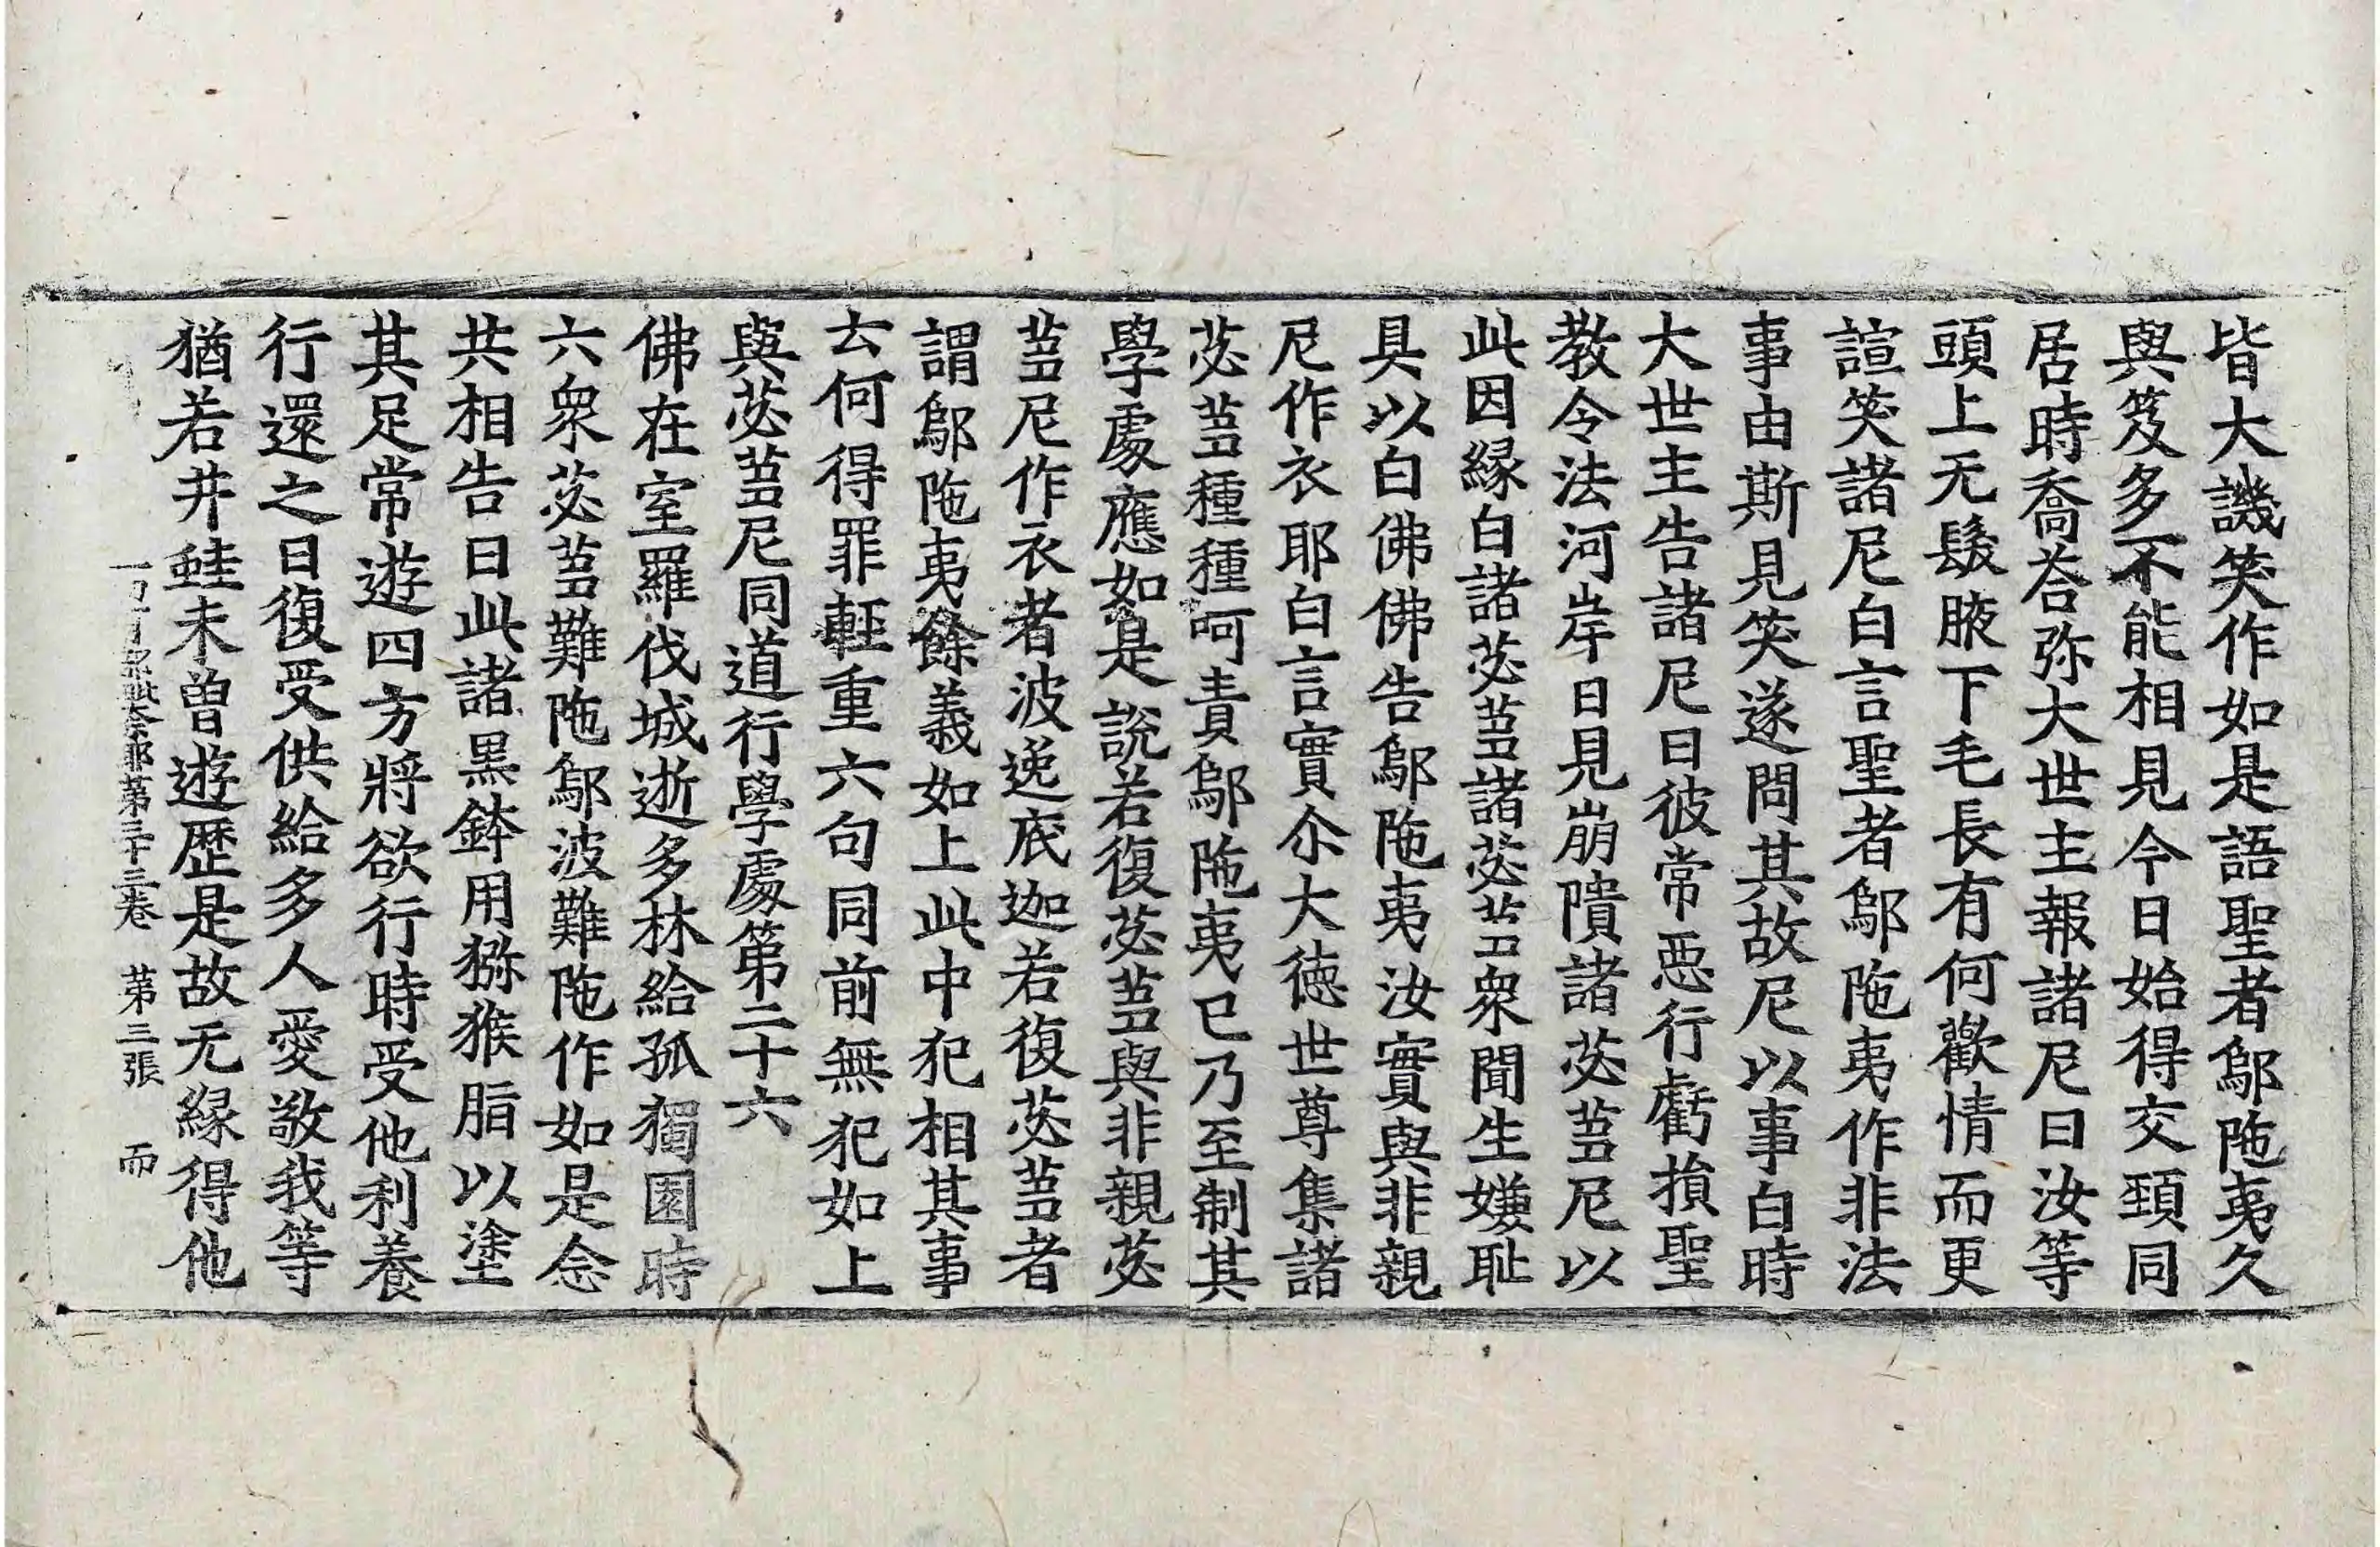 皆大譏笑作如是語聖者鄔陁夷久
與笈多不能相見今日始得交頸同
居時喬荅弥大世主報諸尼曰汝等
頭上无髮腋下毛長有何歡情而更
諠笑諸尼白言聖者鄔陁夷作非法
事由斯見笑遂問其故尼以事白時
大世主告諸尼曰彼常惡行虧損聖
教令法河岸日見崩隤諸苾芻尼以
此因緣白諸苾芻諸苾芻衆聞生嫌恥
具以白佛佛告鄔陁夷汝實與非親
尼作衣耶白言實尒大德世尊集諸
苾芻種種呵責鄔陁夷已乃至制其
學處應如是說若復苾芻與非親苾
芻尼作衣者波逸底迦若復苾芻者
謂鄔陁夷餘義如上此中犯相其事
云何得罪輕重六句同前無犯如上
與苾芻尼同道行學處第二十六
佛在室羅伐城逝多林給孤獨園時
六衆苾芻難陁鄔波難陁作如是念
共相告曰此諸黑鉢用猕猴脂以塗
其足常遊四方將欲行時受他利養
行還之日復受供給多人愛敬我等
猶若井蛙未曾遊歷是故无緣得他
奈耶第三十三卷 第三張 而